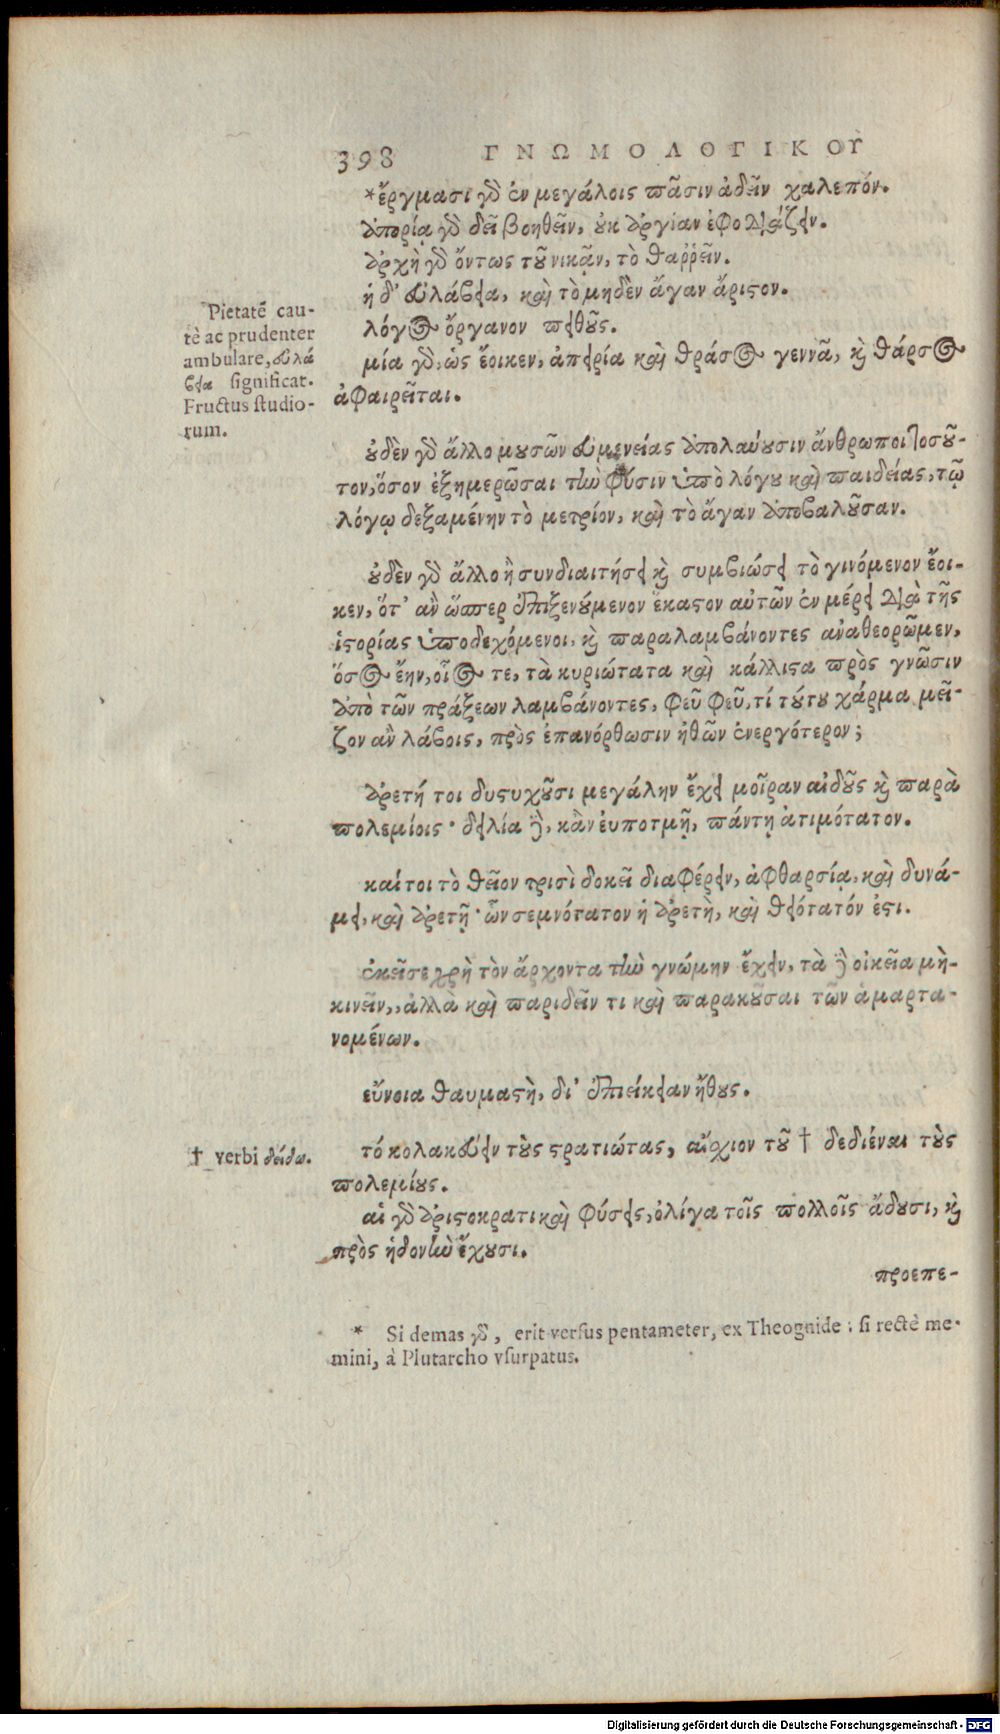 398 ΓΝΩΜΟΛΟΓΙΚΟΥ͂
*ἔργμασι γδ ἐν μεγάλοις πᾶσιν ἁδεῖν χαλεπόν.
ἀπορίᾳ γδ δεῖ βοηθεῖν, οὐκ ἀργίαν ἐφοδιάζειν.
ἀρχὴ γδ ὄντως τοῦ νικᾷν, τὸ θαῤῥεῖν.
ἡ δ' εὐλάβεια, καὶ τὸ μηδὲν ἄγαν ἄριστον.
Pietatē cau-
tè ac prudenter
ambulare, εὐλά
βεια significat.
Fructus studio-
rum.
λόγος ὄργανον πειθοῦς.
μία γδ, ὡς ἔοικεν, ἀπειρία καὶ θράσος γεννᾶ, κὶ θάρσος
ἀφαιρεῖται.
οὐδὲν γδ ἄλλο μουσῶν εὐμενείας ἀπολαύουσιν ἄνθρωποι τοσοῦ-
τον, ὅσον ἐξημερῶσαι τὴν φύσιν ὑπὸ λόγου καὶ παιδείας, τῷ
λόγῳ δεξαμένην τὸ μετρίον, καὶ τὸ ἄγαν ἀποβαλοῦσαν.
οὐδὲν γδ ἄλλο ἢ συνδιαιτήσει κὶ συμβιώσει τὸ γινόμενον ἔοι-
κεν, ὅτ' ἂν ὥσπερ ἐπιξενούμενον ἕκαστον αὐτῶν ἐν μέρει διὰ τῆς
ἱστορίας ὑποδεχόμενοι, κὶ παραλαμβάνοντες ἀναθεορῶμεν,
ὅσος ἔην, οἷος τε, τὰ κυριώτατα καὶ κάλλιστα πρὸς γνῶσιν
ἀπὸ τῶν πράξεων λαμβάνοντες, φεῦ φεῦ, τί τούτου χάρμα μεῖ-
ζον ἂν λάβοις, πρὸς ἐπανόρθωσιν ἠθῶν ἐνεργότερον;
ἀρετή τοι δυστυχοῦσι μεγάλην ἔχει μοῖραν αἰδοῦς κὶ παρὰ
πολεμίοις· δειλία δὲ, κἂν ἐυποτμῇ, πάντῃ ἀτιμότατον.
καίτοι τὸ θεῖον τρισὶ δοκεῖ διαφέρειν, ἀφθαρσίᾳ, καὶ δυνά-
μει, καὶ ἀρετῇ· ὧν σεμνότατον ἡ ἀρετὴ, καὶ θειότατόν ἐστι.
ἐκεῖσε χρὴ τὸν ἄρχοντα τὴν γνώμην ἔχειν, τὰ δὲ οἰκεῖα μὴ-
κινεῖν,, ἀλλὰ καὶ παριδεῖν τι καὶ παρακοῦσαι τῶν ἁμαρτα-
νομένων.
εὔνοια θαυμαστὴ, δι' ἐπιείκειαν ἤθους.
† verbi δείδω.
τό κολακεύειν τοὺς στρατιώτας, αἴσχιον τοῦ † δεδιέναι τοὺς
πολεμίους.
αἱ γδ ἀριστοκρατικαὶ φύσεις, ὀλίγα τοῖς πολλοῖς ἄδουσι, κὶ
πρὸς ἡδονὴν ἔχουσι.
προεπε-
* Si demas γδ, erit versus pentameter, ex Theognide: si rectè me-
mini, à Plutarcho vsurpatus.
Digitalisierung gefördert durch die Deutsche Forschungsgemeinschaft - DFG